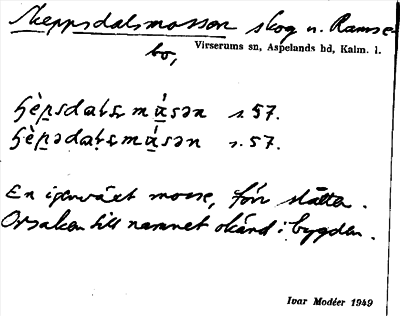 Skeppsdalsmossen skog n. Ramse-
bo,
Virserums sn, Aspelands hd, Kalm. l.
s. 57.
s. 57.
En igenväxt mosse, förr slåtter.
Orsaken till namnet okänd i bygden.
Ivar Modéer 1949